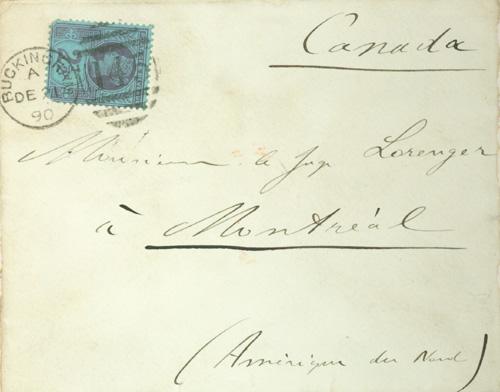 BUCKING
A
DE
90
Canada
Monsieur le Juge Loranger
à Montréal
(Amérique du Nord)